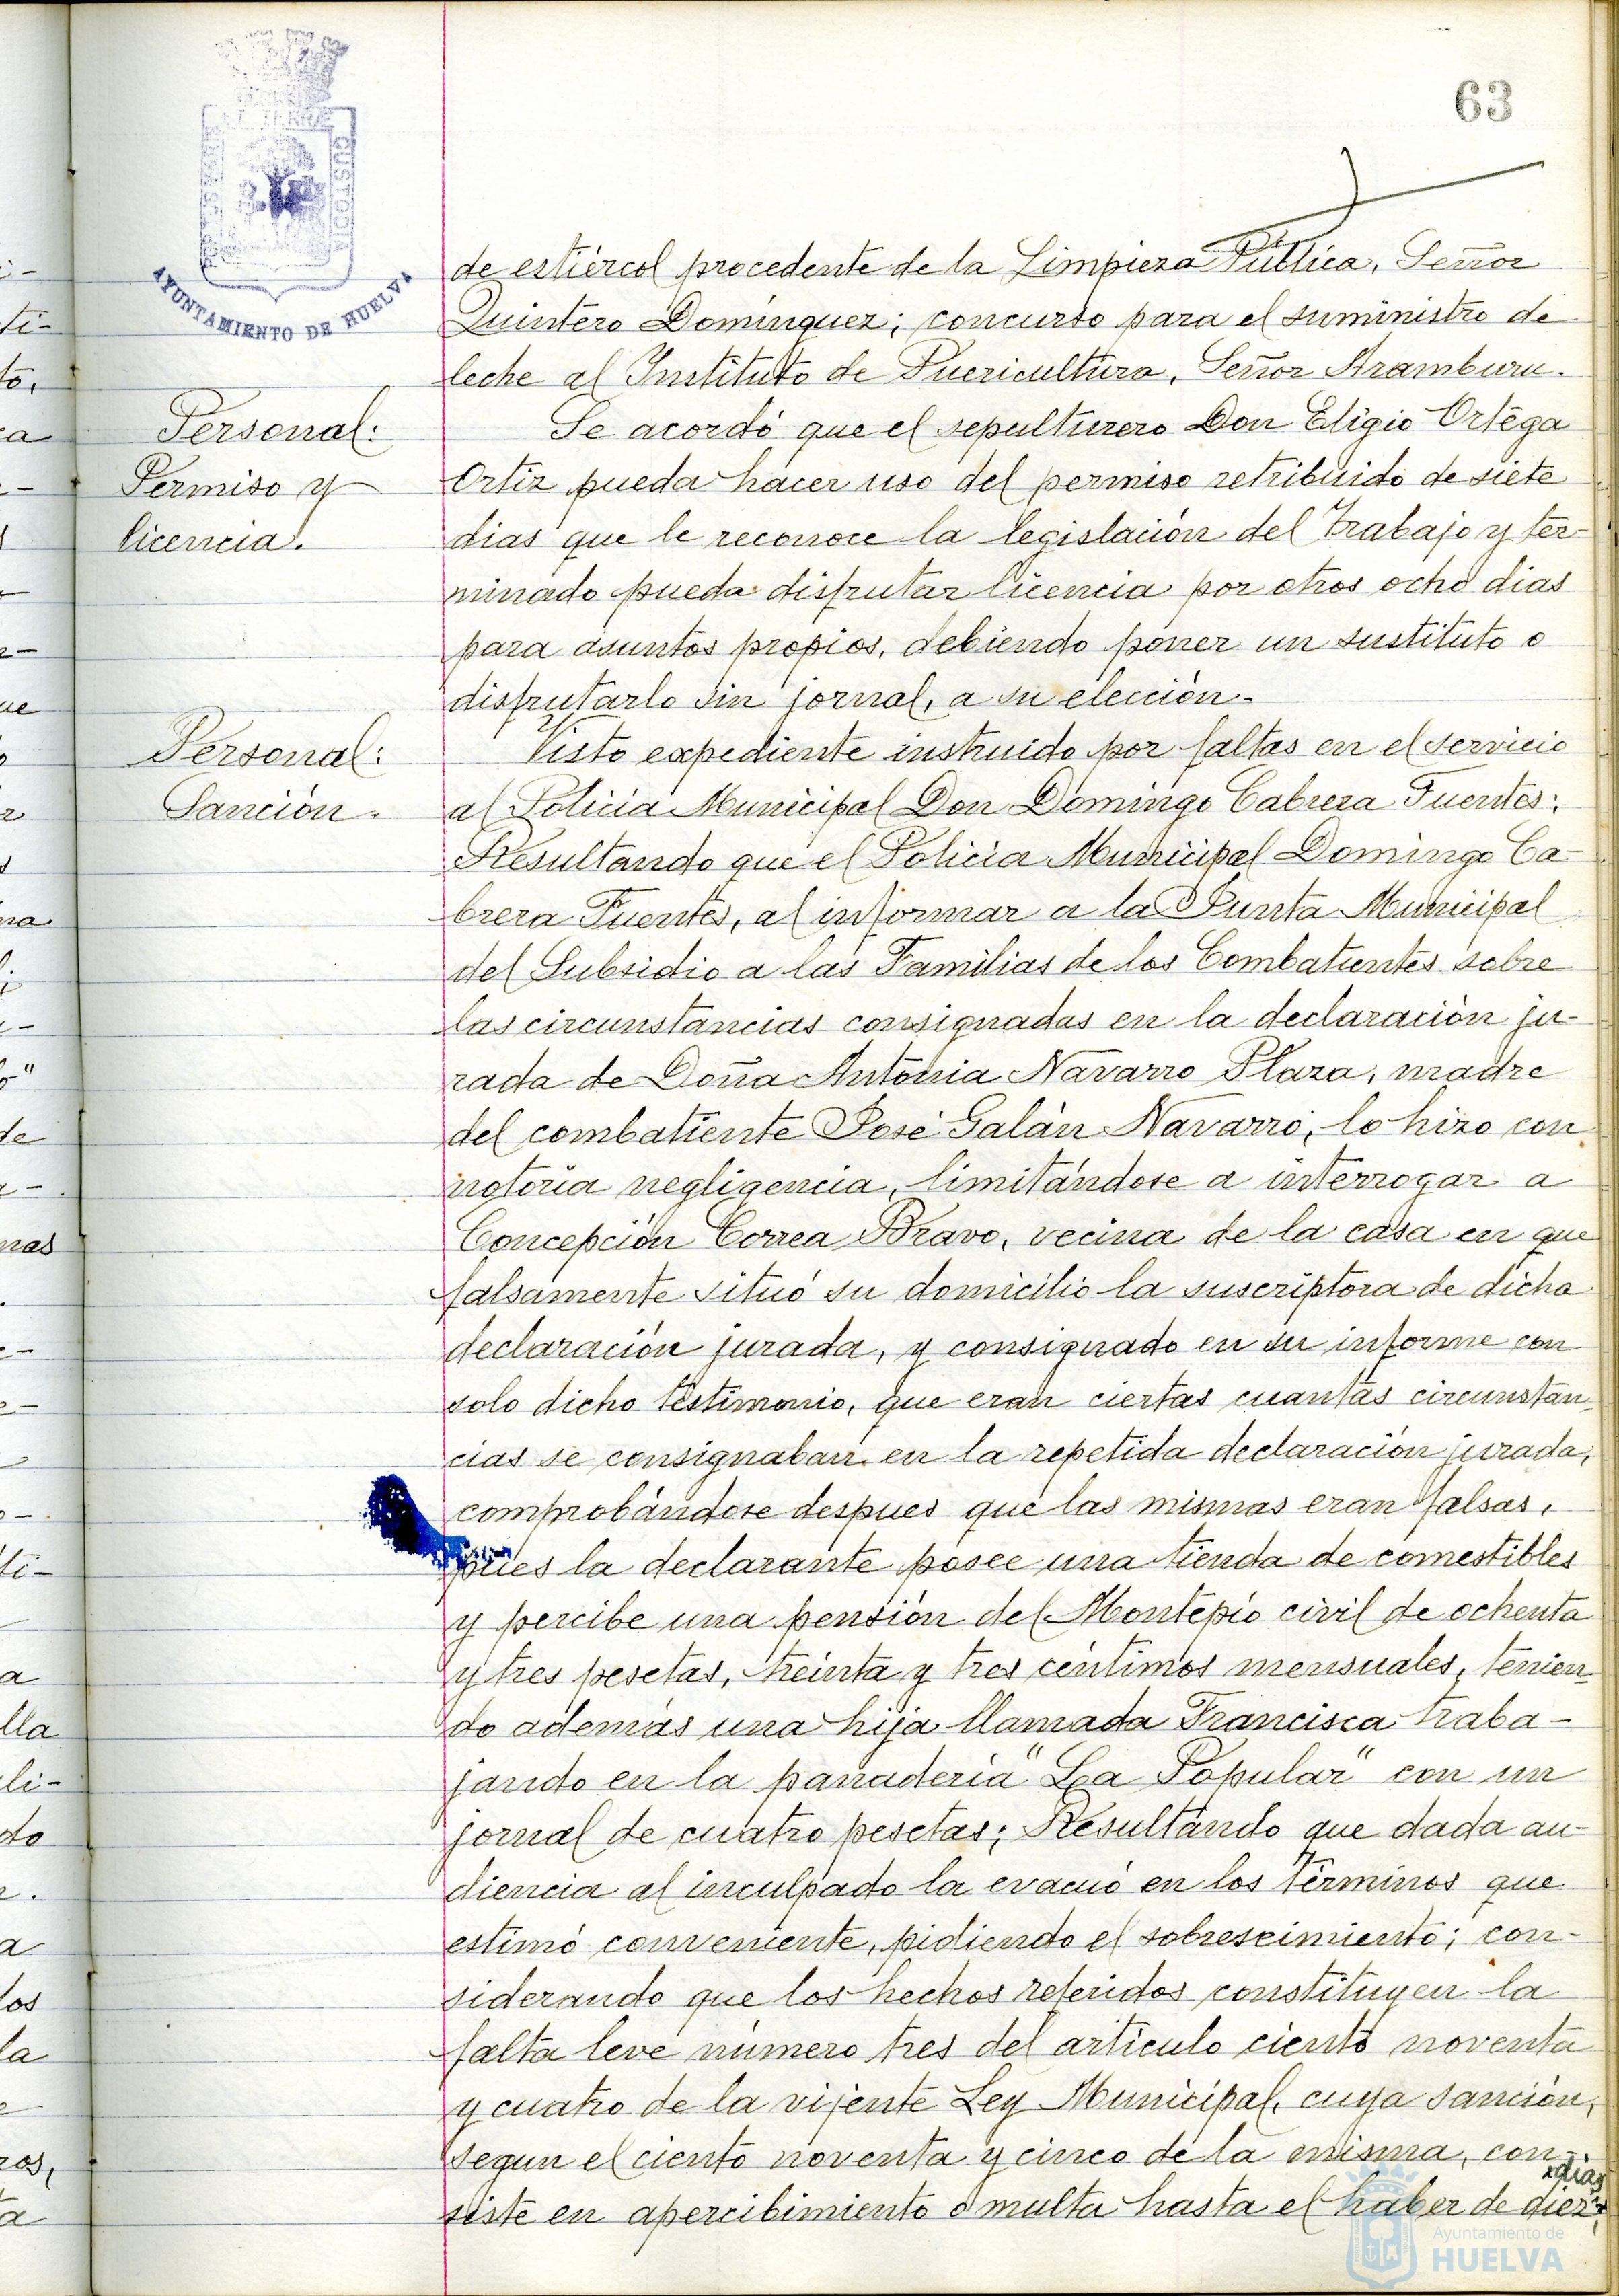 63
AYUNTAMIENTO DE HUELVA
de estiércol procedente de la Limpieza Pública, Señor
Quintero Dominguez; concurso para el suministro de
leche al Instituto de Puericultura, Señor Aramburu.
Personal:
Permiso y
licencia.
Se acordó que el sepulturero Don Eligio Ortega
Ortiz pueda hacer uso del permiso retribuido de siete
dias que le reconoce la legislación del Trabajo y ter-
minado pueda disfrutar licencia por otros ocho dias
para asuntos propios, debiendo poner un sustituto o
disfrutarlo sin jornal, a su elección.
Personal:
Sanción.
Visto expediente instruido por faltas en el servicio
al Policia Municipal Don Domingo Cabrera Fuentes;
Resultando que el Policia Municipal Domingo Ca-
brera Fuentes, al informar a la Junta Municipal
del Subsidio a las Familias de los Combatientes sobre
las circunstancias consignadas en la declaración ju-
rada de Doña Antonia Navarro Plaza, madre
del combatiente José Galán Navarro, lo hizo con
notoria negligencia, limitándose a interrogar a
Concepción Correa Bravo, vecina de la casa en que
falsamente situó su domicilio la suscriptora de dicha
declaración jurada, y consignado en su informe con
solo dicho testimonio, que eran ciertas cuantas circunstan-
cias se consignaban en la repetida declaración jurada,
comprobándose despues que las mismas eran falsas,
pues la declarante posee una tienda de comestibles
y percibe una pensión del Montepio civil de ochenta
y tres pesetas, treinta y tres céntimos mensuales, tenien-
do además una hija llamada Francisca traba-
jando en la panaderia "La Popular" con un
jornal de cuatro pesetas; Resultando que dada au-
diencia al inculpado la evacuó en los términos que
estimó conveniente, pidiendo el sobreseimiento; con-
siderando que los hechos referidos constituyen la
falta leve número tres del articulo ciento noventa
y cuatro de la vijente Ley Municipal, cuya sanción,
segun el ciento noventa y cinco de la misma, con-
dias
siste en apercibimiento o multa hasta el haber de diez
Ayuntamiento de
HUELVA